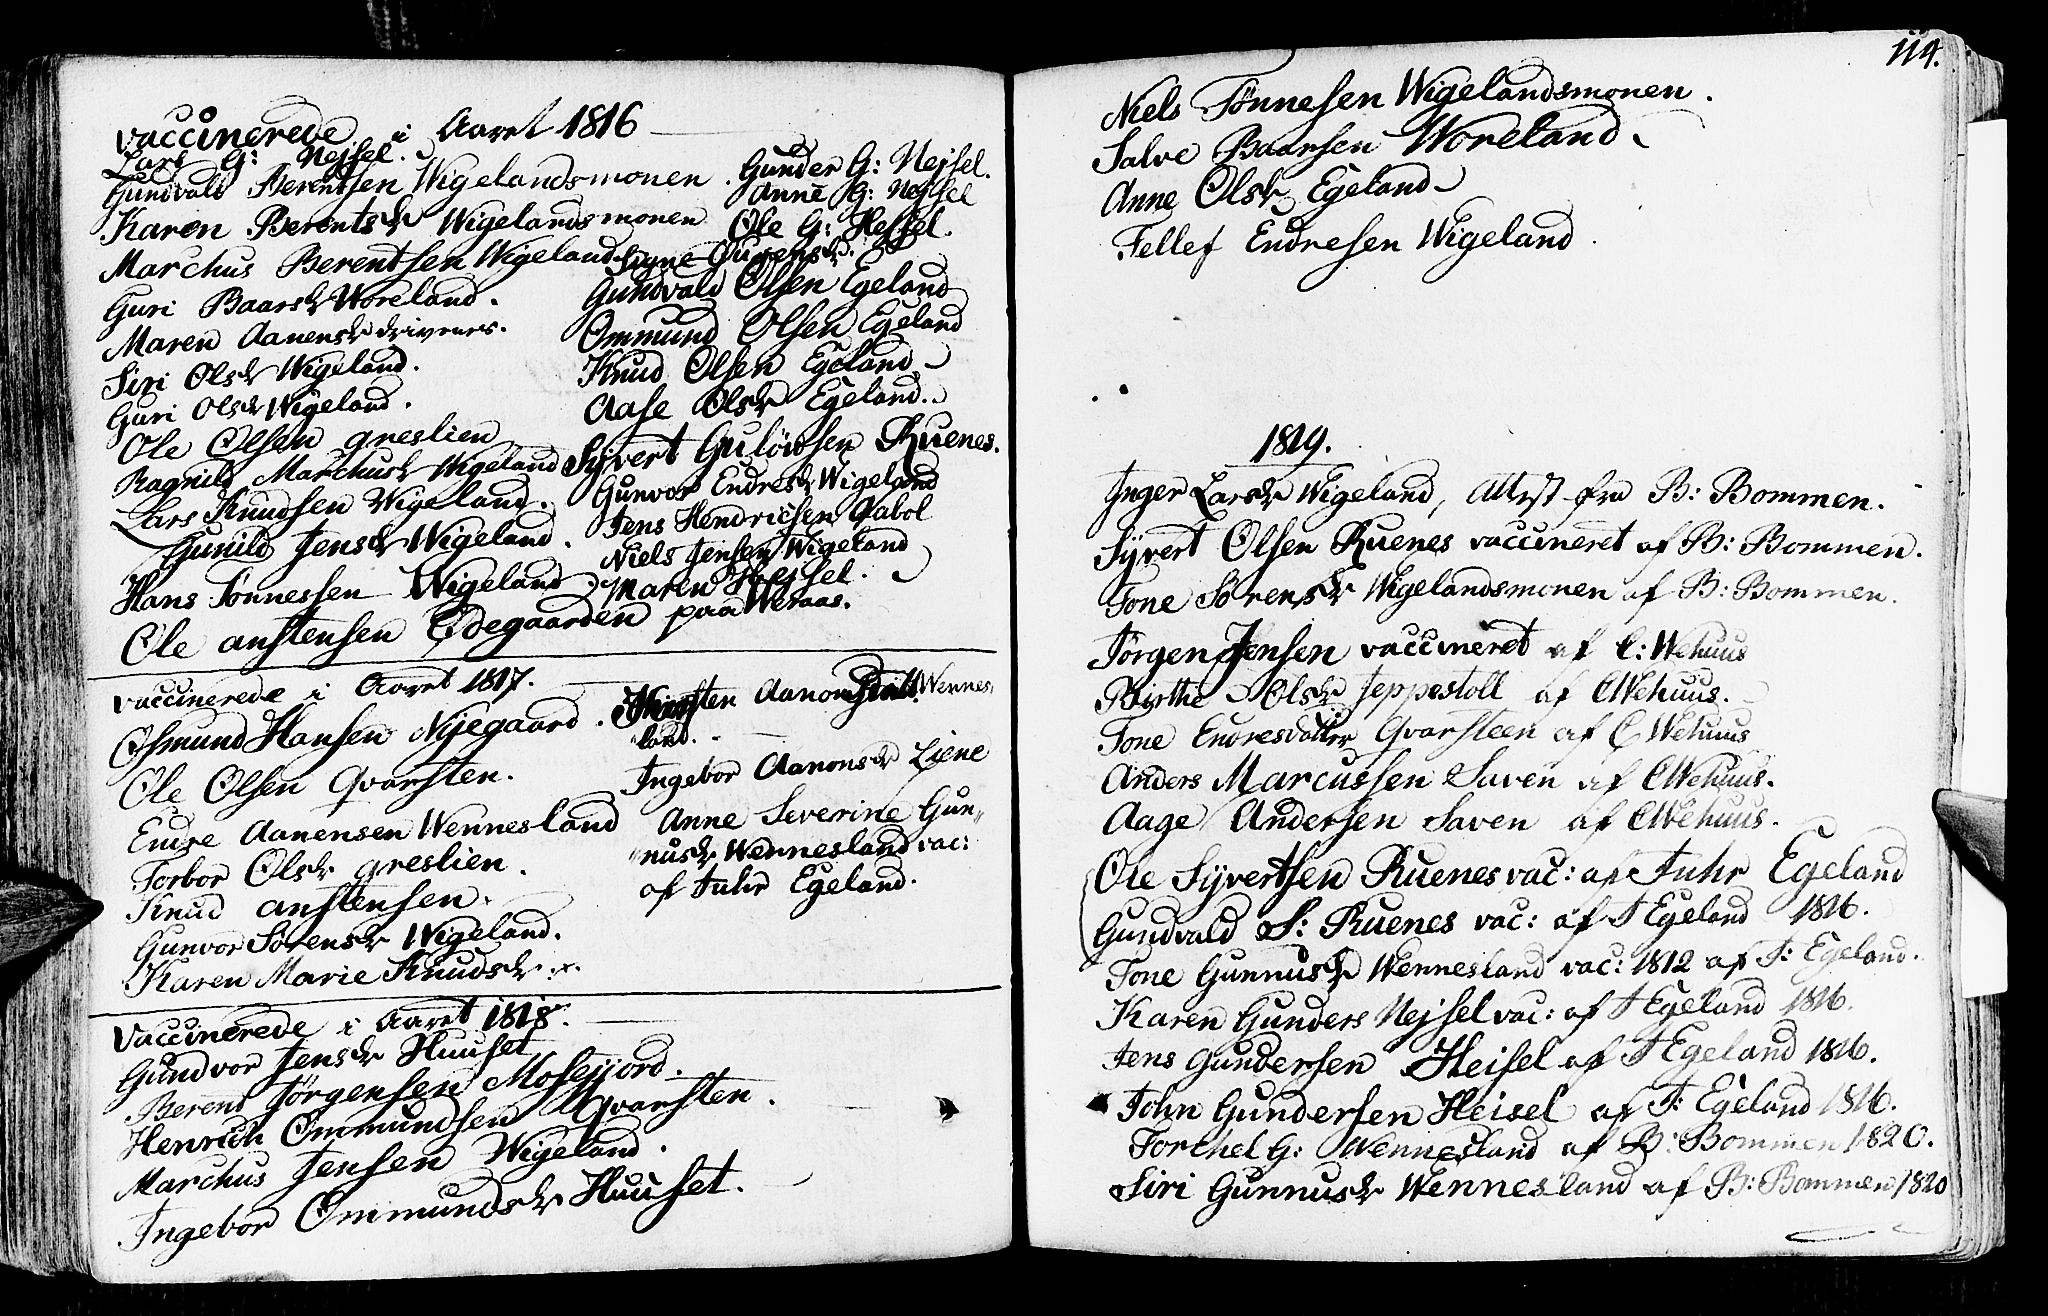 vaccinerede i Aaret 1816
Lars G: Nejsel.
Gundvald Berentsen Wigelandsmonen
Karen Berentsdr Wigelandsmonen
Marchus Berentsen Wigeland
Guri Baarsdr Woreland.
Maren Aanensdr drivenes.
Siri Olsdr Wigeland.
Guri Olsdr Wigeland.
Ole Olsen greslien
Ragnild Marchusdr Wigeland
Lars Knudsen Wigeland.
Gunild Jensdr Wigeland.
Hans Tønnessen Wigeland.
Ole anstensen Ødegaarden paa Weraas.
Gunder G: Nejsel.
Anne G: Nejsel
Ole G: Hejsel.
Signe
Gundvald Olsen Egeland
Ommund Olsen Egeland
Knud Olsen Egeland
Aase Olsdr Egeland.
Syvert Guløvsen Ruenes.
Gunvor Endresdr Wigeland
Jens Hendrichsen Qabol
Niels Jensen Wigeland
Maren Hejsel.
vaccinerede i Aaret 1817.
Osmund Hansen Nyegaard.
Ole Olsen Qvarsten.
Endre Aanensen Wennesland
Torbor Olsdr greslien.
Knud anstensen.
Gunvor Sørensdr Wigeland.
Karen Marie Knudsdr
Kirsten Aanons Wennes,
land.
Ingebor Aanonsdr Liene
Anne Severine Gun„
„nusdr Wennesland vac:
af Fuhr Egeland.
vaccinerede i Aaret 1818.
Gundvor Jensdr Huuset
Berent Jørgensen Mosefjord.
Henrich Ommundsen Qvarsten.
Marchus Jensen Wigeland.
Ingebor Ommundsdr Huuset.
114.
Niels Tønnesen Wigelandsmonen.
Salve Baarsen Woreland
Anne Olsdr Egeland
Tellef Endresen Wigeland.
1819.
Inger Larsdr Wigeland, Attest fra B: Bommen.
Syvert Olsen Ruenes vaccineret af B: Bommen.
Tone Sørensdr Wigelandsmonen af B: Bommen.
Jørgen Jensen vaccineret af C: Wehuus
Birthe Olsdr Jeppestoll af C Wehuus.
Tone Endresdatter Qvarsteen af C Wehuus
Anders Marcussen Saven af C Wehuus.
Aage Andersen Saven af C Wehuus.
Ole Syvertsen Ruenes vac: af Fuhr Egeland
Gundvald S: Ruenes vac: af F Egeland 1816.
Tone Gunnusdr Wennesland vac: 1812 af F: Egeland.
Karen Gunders Nejsel vac: af F Egeland 1816.
Jens Gundersen Heisel af F Egeland 1816.
John Gundersen Heisel af F: Egeland 1816.
Torchel G: Wennesland af B: Bommen 1820.
Siri Gunnusdr Wennesland af B: Bommen 1820